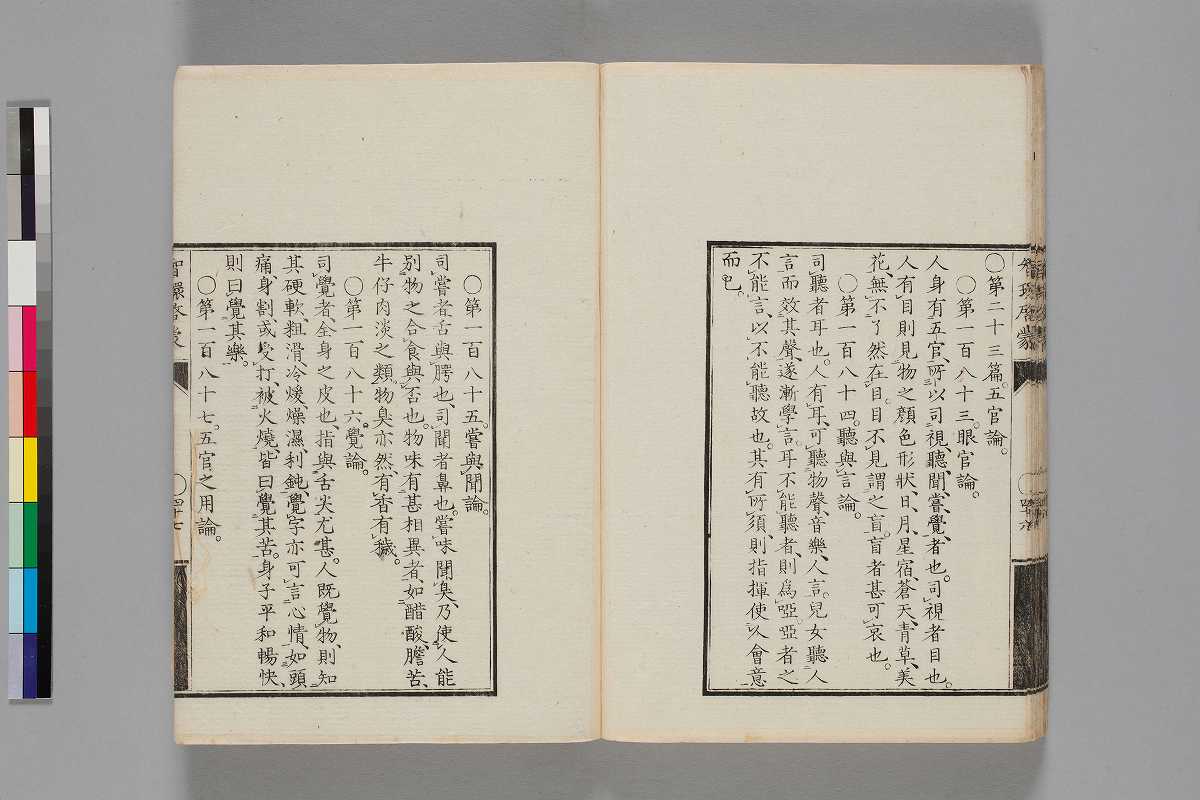 智環啓蒙
四十六
○第二十三篇。五官論。
○第一百八十三。眼官論。
人身有五官、所以司視、聽、聞、嘗、覺、者也。司視者目也。
人有目則見物之顔色形狀、日、月、星宿、蒼天、青草、美
花、無不了然在目。目不見謂之盲。盲者甚可哀也。
○第一百八十四。聽與言論。
司聽者耳也。人有耳、可聽物聲、音樂、人言。兒女聽人
言而效其聲、遂漸學言。耳不能聽者、則爲啞。啞者之
不能言、以不能聽故也。其有所須、則指揮使人會意
而已。
○第一百八十五。嘗與聞論。
司嘗者舌與腭也、司聞者鼻也。嘗味聞臭、乃使人能
別物之合食與否也。物味有甚相異者、如醋酸、膽苦、
牛仔肉淡之類。物臭亦然、有香有穢。
○第一百八十六。覺論。
司覺者、全身之皮也、指與舌尖尤甚。人既覺物、則知
其硬軟、粗滑、冷煖燥濕、利鈍。覺字亦可言心情、如頭
痛、身割、或受打、被火燒、皆曰覺其苦。身子平和暢快、
則曰覺其樂。
○第一百八十七。五官之用論。
智環啓蒙
四十七